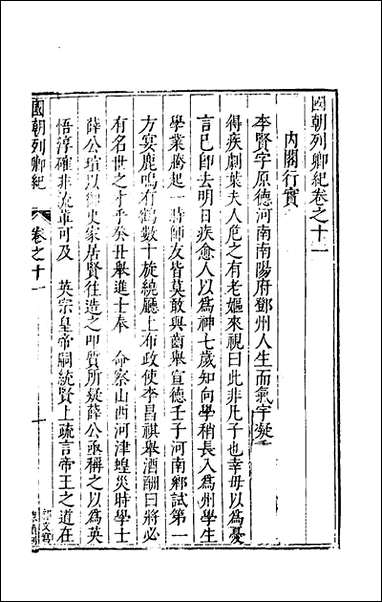 國朝列卿紀卷之十一
內閣行實
李賢字原德河南南陽府鄧州人生而氣宇凝
得疾劇葉夫人危之有老嫗來視曰此非凡子也幸毋以爲憂
言已卽去明日疾愈人以爲神七歲知向學稍長入爲州學生
學業勝起一時師友皆莫敢與齒舉宣德壬子河南鄉試第一
方宴鹿鳴有鶴數十旋繞廳上布政使李昌祺舉酒酬曰將必
有名世之才乎癸丑舉進士奉 命察山西河津蝗災時學士
薛公瑄以御史家居賢往造之叩質所疑薛公亟稱之以爲英
悟淳確非流輩可及 英宗皇帝嗣統賢上疏言帝王之道在
國朝列卿紀 卷之十一